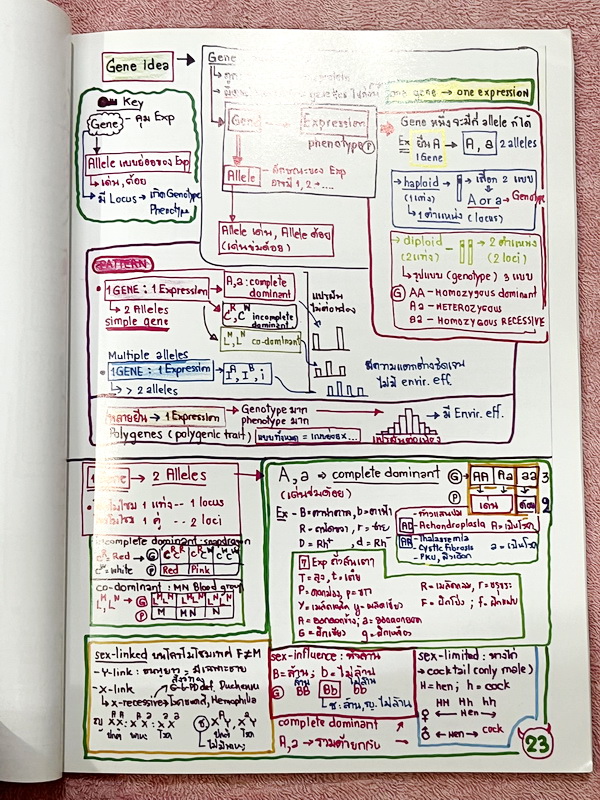 Gene idea
Gene
one gene → one expression
Key
Gene - คุม Exp
Allele แบบย่อยของ Exp
↳ เด่น, ด้อย
↳ มี Locus → เกิด Genotype
Phenotype
Gene → Expression
phenotype Ⓟ
Allele - ลักษณะของ Exp
อาจมี 1, 2 → ....
Allele เด่น, Allele ด้อย
(เด่นข่มด้อย)
Gene หนึ่งจะมีกี่ allele ก็ได้
Ex ยีน A → A, a 2 alleles
1 Gene
haploid → เลือก 2 แบบ
(1 แท่ง) A or a → Genotype
↳ 1 ตำแหน่ง (locus)
diploid → 2 ตำแหน่ง
(2 แท่ง) (2 loci)
↳ รูปแบบ (genotype) 3 แบบ
Ⓖ AA - HOMOZYGOUS DOMINANT
Aa - HETEROZYGOUS
aa - HOMOZYGOUS RECESSIVE
PATTERN
• 1 GENE : 1 Expression → A, a : complete dominant
↳ 2 Alleles
simple gene
Cᴿ, Cᵂ incomplete dominant
Lᴹ, Lᴺ co-dominant
แปรผันไม่ต่อเนื่อง
Multiple alleles
• 1 GENE : 1 Expression → Iᴬ, Iᴮ, i
↳ > 2 alleles
มีความแตกต่างชัดเจน
ไม่มี envir. eff
หลายยีน → 1 Expression → Genotype มาก
phenotype มาก
Polygenes (polygenic trait)
→ มี Envir. eff.
แปรผันต่อเนื่อง
1 Gene → 2 Alleles
โครโมโซม 1 แท่ง → 1 locus
1 คู่ → 2 loci
Incomplete dominant : snapdragon
Cᴿ = Red → Ⓖ CᴿCᴿ CᴿCᵂ CᵂCᵂ
Cᵂ = White Ⓟ Red Pink
co-dominant : MN Blood group
Lᴹ, Lᴺ → Ⓖ LᴹLᴹ LᴹLᴺ LᴺLᴺ
Ⓟ M MN N
A, a → complete dominant
(เด่นข่มด้อย)
Ⓖ → AA Aa aa 3
Ⓟ → เด่น ด้อย 2
Ex - B = ตาน้ำตาล, b = ตาฟ้า
R = ถนัดขวา, r = ซ้าย
D = Rh⁺, d = Rh⁻
AD - Achondroplasia A = เป็นโรค
AR - Thalassemia
Cystic Fibrosis
PKU, ผิวเผือก
a = เป็นโรค
7 Exp ถั่วลันเตา
T = สูง, t = เตี้ย
P = ดอกม่วง, p = ขาว
Y = เมล็ดเหลือง y = เมล็ดเขียว
G = ฝักเขียว g = ฝักเหลือง
R = เมล็ดกลม, r = ขรุขระ
F = ฝักโป่ง ; f = ฝักแฟบ
sex-linked บนโครโมโซมเพศ F≠M
- Y-link :
- X-link G-6-PD def. Duchenne
↳ x-recessive → Hemophilia
ปกติ พาหะ โรค
ปกติ โรค
ไม่มีพาหะ
sex-influence : หัวล้าน
B = ล้าน ; b = ไม่ล้าน
ล้าน ไม่ล้าน
Ⓖ BB Bb bb
↳ ช : ล้าน, ญ. ไม่ล้าน
complete dominant
A, a →
sex-limited : หางไก่
→ cocktail (only male)
H = hen ; h = cock
HH Hh hh
♀ ← Hen →
♂ ← Hen → cock
23